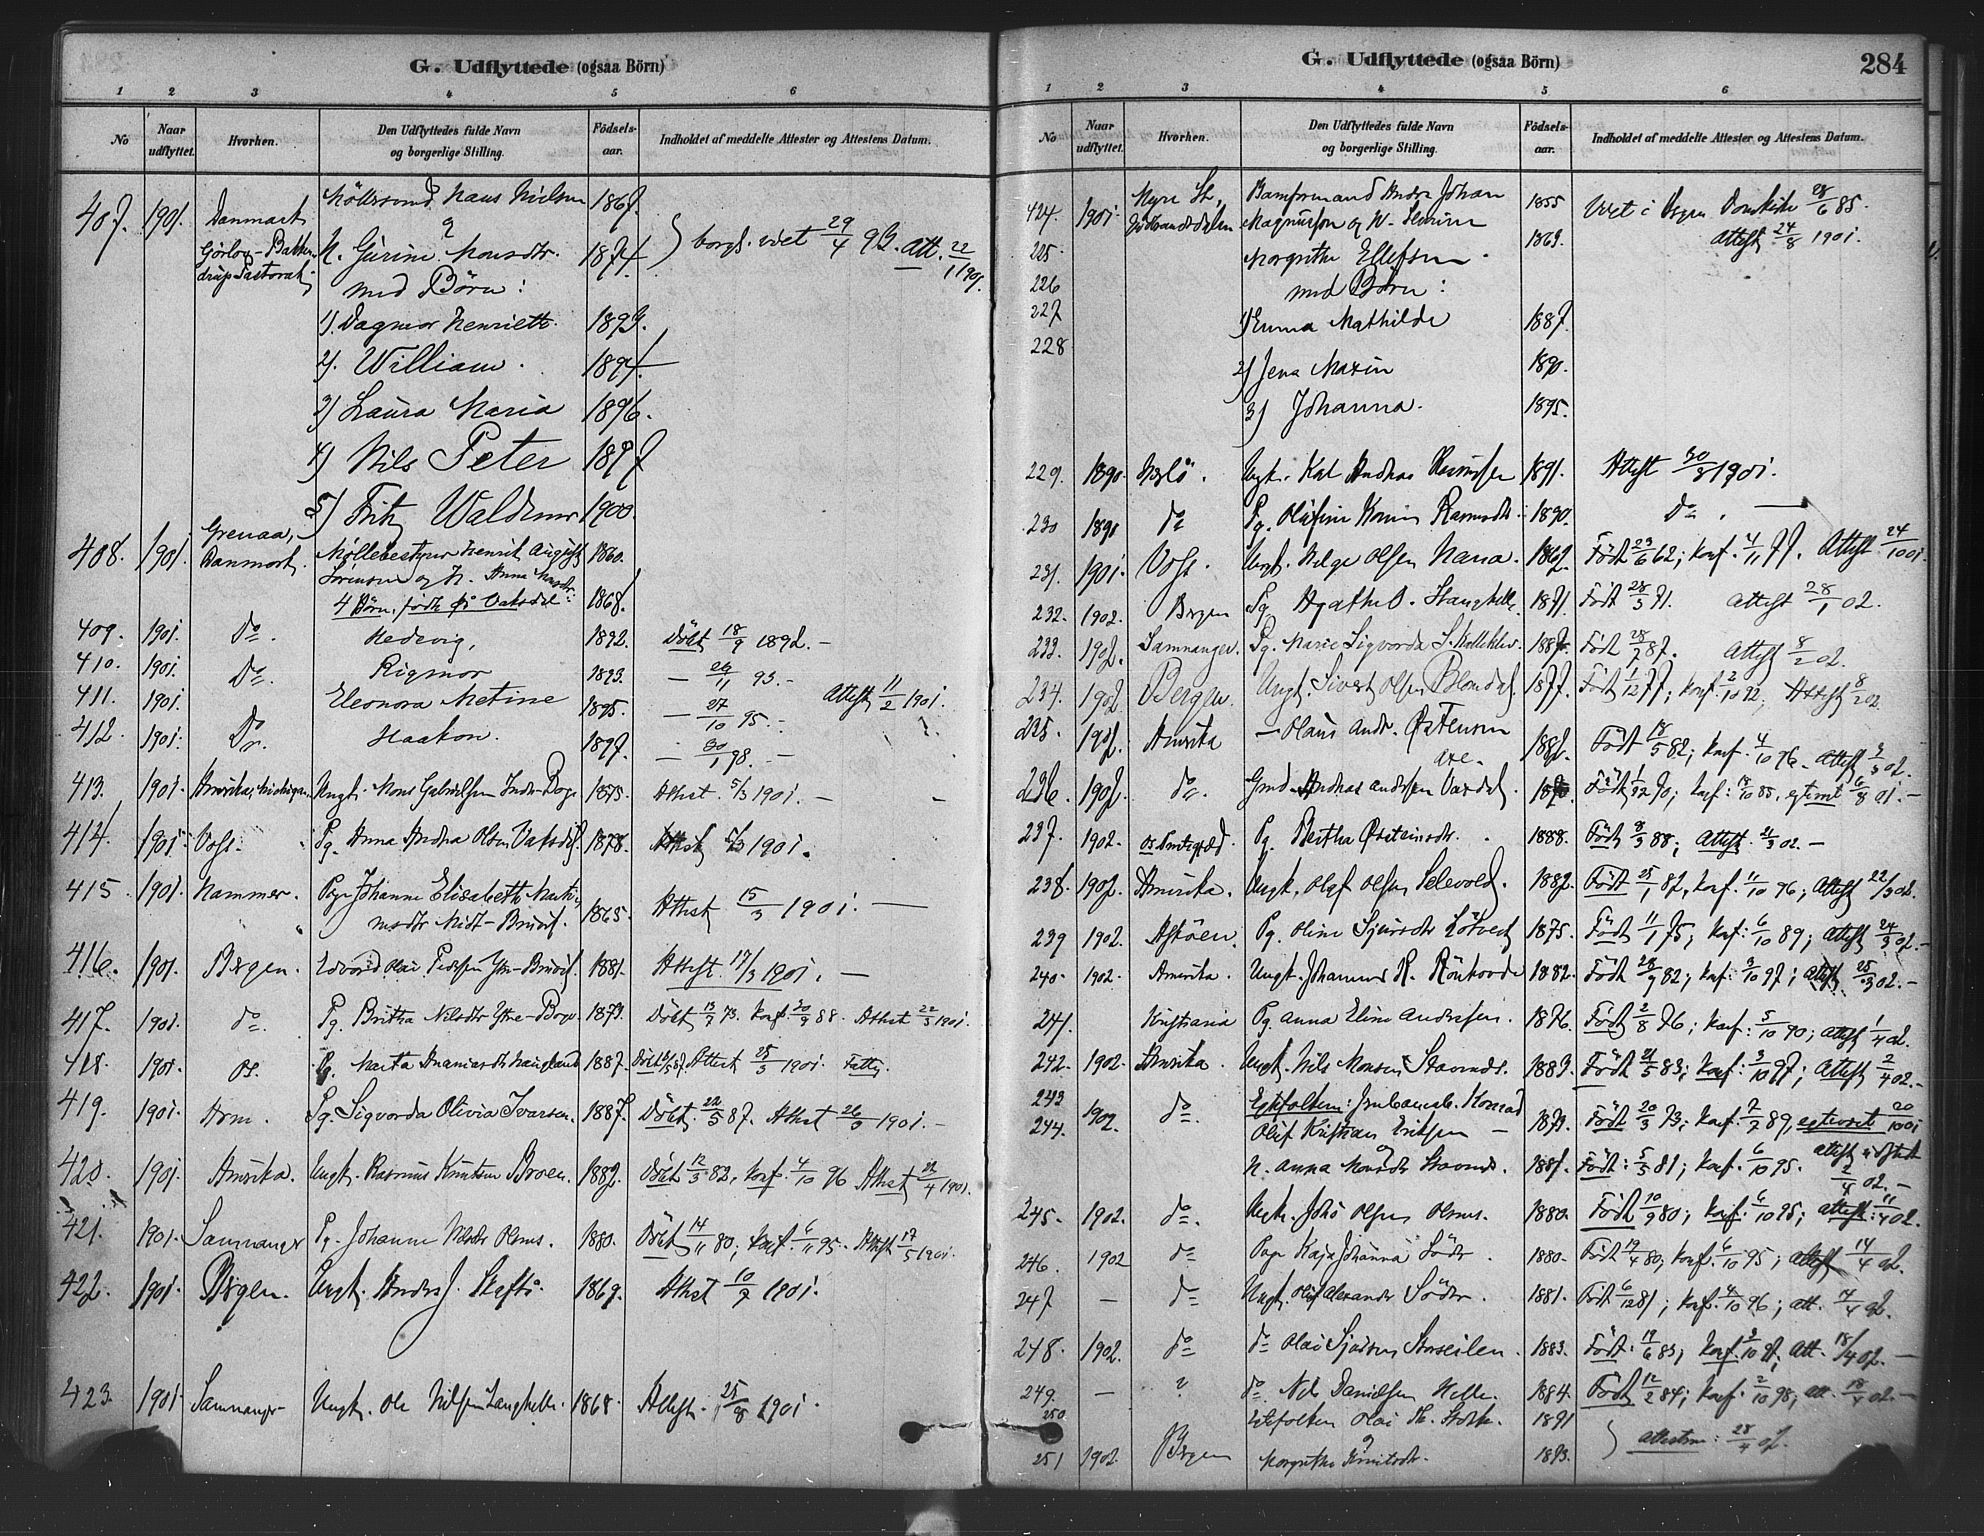 G. Udflyttede (ogsaa Börn)
1 2 3 4 5 6
No
Naar udflyttet.
Hvorhen.
Den Udflyttedes fulde Navn og borgerlige Stilling.
Födsels-aar.
Indholdet af meddelte Attester og Attestens Datum.
407. 1901. Danmark Möllersvend Hans Nielsen 1867.
Görlev-Bakken- & H. Gurine Monsdtr. 1874 borgl. viet 29/4 93. Att. 22/1 1901.
drup Pastorat. med Börn:
1). Dagmar Henriette. 1893.
2). William. 1894.
3) Laura Maria 1896.
4) Nils Peter 1897
5) Fritz Waldemar 1900.
408. 1901. Grenaa, Danmark. Möllebestyrer Henrik August 1860.
Sörensen og H. Anna Monsdtr: 1868.
4 Börn, födte på Vaksdal:
409. 1901. Do. Hedevig, 1892. Döbt 18/9 1892. -
410. 1901. Do. Rigmor 1893. - 26/11 93. -
411. 1901. Eleonora Metine 1895. - 27/10 95. - Attest 11/2 1901.
412. 1901. Do. Haakon. 1897. - 30/1 98. -
413. 1901. Amerika, Michigan. Ungk. Mons Gabrielsen Indre Boge 1875. Attest. 5/3 1901. -
414. 1901. Voss. Pg. Anna Andrea Olsen Vaksdal. 1878. Attest 5/3 1901.
415. 1901. Hammer. Pige Johanne Elisabeth Martin-
usdtr Midt-Bruvik. 1865. Attest 15/3 1901. -
416. 1901. Bergen. Edvard Olai Pedersen Ytre-Bruvik. 1881. Attest. 17/3 1901. -
417. 1901. do. Pg. Britha Nilsdtr Ytre-Boge 1873. Döbt 13/7 73. Konf. 30/9 88. Attest 22/3 1901.
418. 1901. Os. Pg. Marta Ananiasdtr Haugland 1887. Attest 25/3 1901.
419. 1901. Hom. Pg. Sigvarda Olivia Ivarsen. 1887. Döbt 22/5 87. Attest 26/3 1901. -
420. 1901. Amerika. Ungk. Rasmus Knutsen Broen. 1882. Döbt 12/3 82, Konf. 4/10 96 Attest 22/4 1901.
421. 1901. Samnanger Pg. Johanne Nilsdtr Olsnes. 1880. Döbt 14/11 80; Konf. 6/11 95. Attest 17/5 1901.
422. 1901. Bergen. Ungk. Anders J. Skaftå. 1869. Attest 10/7 1901.
423. 1901. Samnanger Ungk. Ole Nilsen Langhelle. 1868. Attest. 25/8 1901.
G. Udflyttede (ogsaa Börn)
284
1 2 3 4 5 6
No
Naar udflyttet.
Hvorhen.
Den Udflyttedes fulde Navn og borgerlige Stilling.
Födsels-aar.
Indholdet af meddelte Attester og Attestens Datum.
424. 1901. Myre St., Banformand Andr. Johan 1855 Viet i Bergen Domkirke 28/6 85.
225 Gudbrandsdalen Magnusson og H. Severine 1863. Attest 24/8 1901.
226 Margrethe Ellefsen.
med Börn:
227 1) Emma Mathilde 1887.
228 2) Jena Maxin 1890.
3) Johanna. 1895.
229. 1890. Herlö. Ungk. Karl Andreas Rasmussen 1891. Attest 30/8 1901.
230 1891 do Pg. Olufine Karin Rasmusdtr. 1890. Do. -
231. 1901. Voss. Ungk. Helge Olsen Naaria. 1862. Född 23/6 62; Konf. 4/11 77. Attest 24/10 01.
232. 1902. Bergen Pg. Agathe O. Stanghelle. 1871. Född 28/3 71. Attest 28/1 02.
233. 1902. Samnanger. Pg. Marie Sigvarda S. Kallekleiv. 1887. Född 28/7 87. Attest 8/2 02.
234. 1902 Bergen. Ungk. Sivert Olsen Blomdal. 1877. Född 1/12 77, Konf. 2/10 92, Attest 8/2 02.
235. 1902. Amerika - Olaus Andr. Östensen 1882. Född 18/5 82; Konf. 4/10 96. Attest 3/3 02.
236. 1902. do. Gmd. Andreas Andersen Vaxdal. 1870. Född 1/12 70; Konf. 18/10 85,
237. 1902. Pg. Bertha Östeinsdtr. 1888. Född 8/3 88; Attest 21/3 02. -
238. 1902. Amerika. Ungk. Olaf Olsen Selevold. 1882. Född 25/1 82, Konf. 11/10 96; Attest 22/3 02.
239 1902. Asköen. Pg. Oline Sjursdtr Lötveit 1875. Född 11/1 75; Konf. 6/10 89; Attest 24/3 02. -
240. 1902. Amerika. Ungk. Johannes K. 1882. Född 28/9 82; Konf. 3/10 97; Attest 25/3 02. -
241. Kristiania Pg. Anna Eline Andersen. 1876. Född 2/8 76; Konf. 5/10 90; Attest 1/4 02.
242. 1902. Amerika. Ungk. Nils Monsen Stavenes. 1883. Född 21/5 83; Konf. 3/10 97; Attest 2/4 02. -
243 1902. do. Egtefolkene: Konrad
244. Oluf Kristian Eriksen - 1873. Född 20/3 73; Konf. 7/7 89,
& H. Anna Monsdtr Stavenes. 1881. Född: 5/3 81; Konf. 6/10 95. 2/4 02. -
245. 1902. do. Ungk. Johs Olsen Olsnes. 1880. Född 10/9 80; Konf. 6/10 95; Attest: 11/4 02.
246. 1902 do Pige Kaja Johanna Södr. 1880. Född 19/4 80; Konf. 6/10 95; Attest 14/4 02.
247 - do Ungk. Oluf Alexander Södr. 1881. Född 6/12 81; Konf. 4/10 96; Att. 14/4 02.
248. 1902. do do Olai Storseilen. 1883. Född. 19/6 83; Konf. 3/10 97; Att. 18/4 02. -
249. - do. Nils Danielsen Helle. 1884. Född 12/2 84; Konf. 2/10 98; att. 18/4 02. -
250. Egtefolkene Olai 1871
251 1902 Bergen & Margrethe Knutsdtr. 1873. Attesterne: 28/4 02.